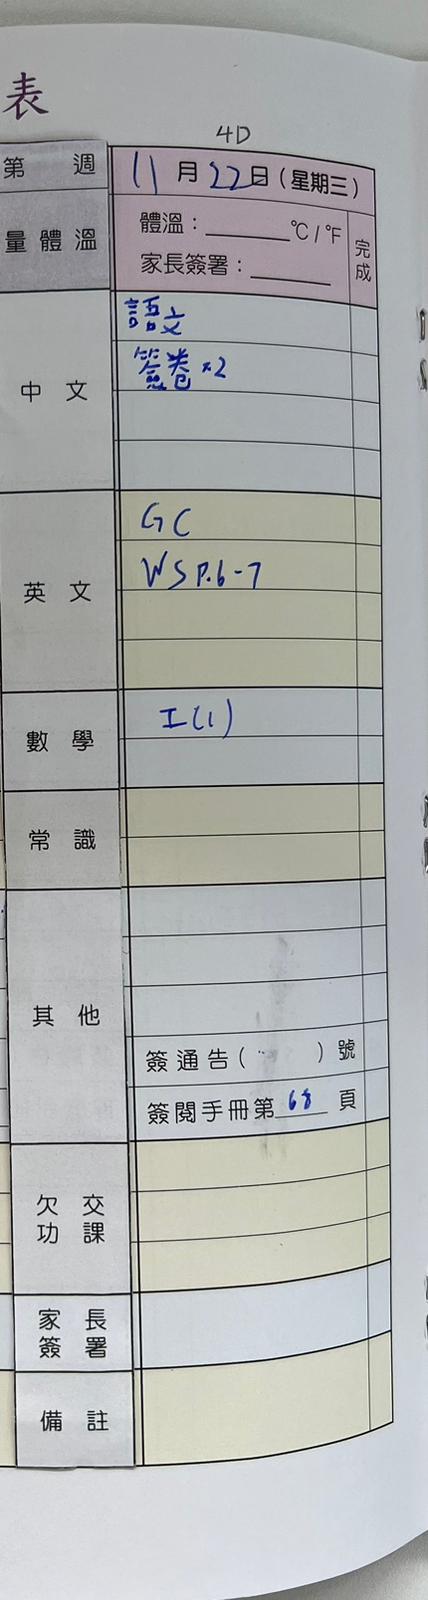 表
4D
第 週 11月22日(星期三)
量體溫 體溫：______°C / °F 完成
家長簽署：______
中文 語文
簽卷×2
英文 GC
WS P.6-7
數學 I(1)
常識
其他
簽通告( )號
簽閱手冊第68頁
欠交功課
家長簽署
備註